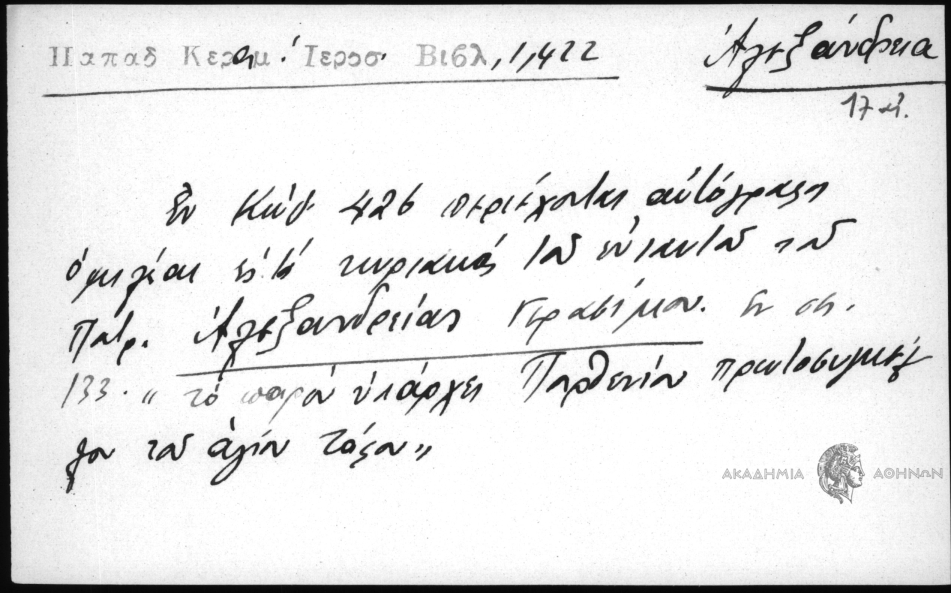 Παπαδ Κεραμ. Ἱεροσ. Βιβλ, 1, 422
Ἀλεξάνδρεια
17 αἰ.
Ἐν Κώδ 426 περιέχονται αὐτόγραφοι
ὁμιλίαι εἰς τὰς κυριακὰς τοῦ ἐνιαυτοῦ τοῦ
Πατρ. Ἀλεξανδρείας Γερασίμου. Ἐν σελ.
133. „ τὸ παρὸν ὑπάρχει Παρθενίου πρωτοσυγκέλ
λου τοῦ ἁγίου Τάφου „
ΑΚΑΔΗΜΙΑ ΑΘΗΝΩΝ